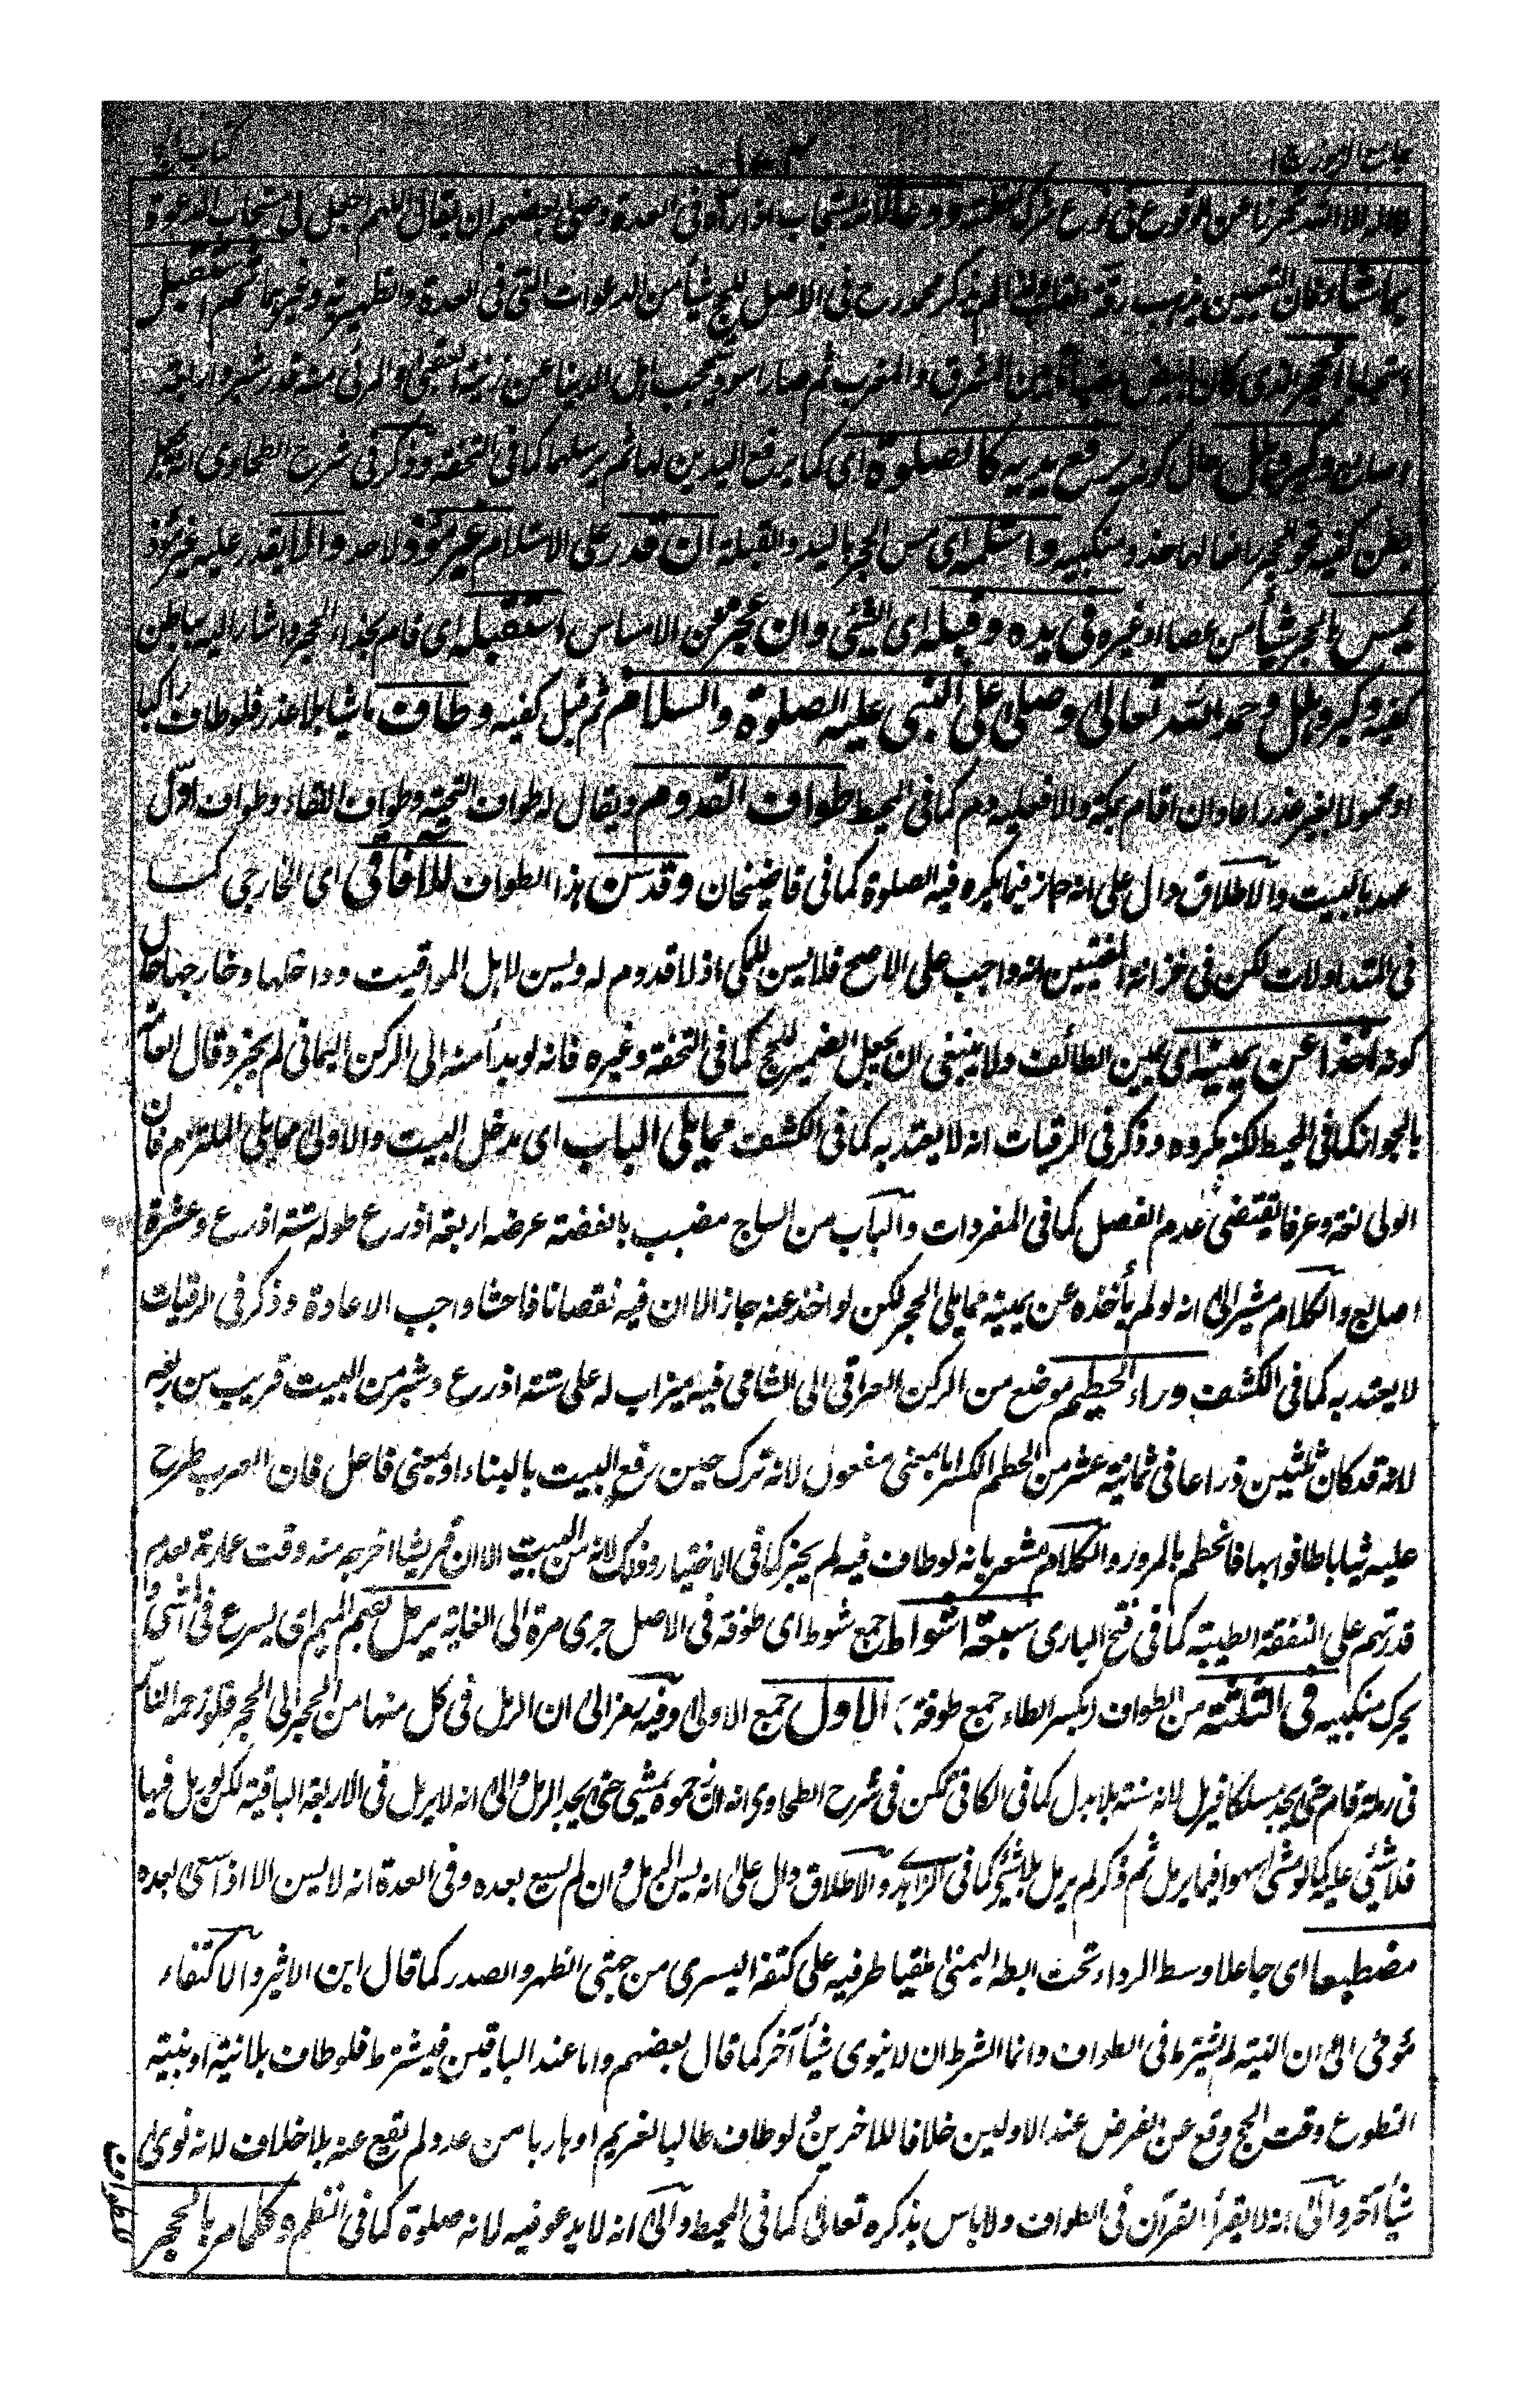 جامع الرموز ج ا
كتاب الحج
لا اله الا الله تحرزا عن الوقوع في نوع شرك ودعا لانه يستجاب اذا رآه في العدة وصلى بعضهم ان يقال اللهم اجعل لي مستجاب الدعوة
بما شاء فان التعيين يذهب رقة القلب لم يذكر محمد رح في الاصل للحج شيأ من الدعوات التي في العدة والظهيرية وغيرهما ثم استقبل
الحجر الذي كان ابيض مضيأ ما بين المشرق والمغرب ثم صار اسود لحجب اهل الدنيا عن زينة العقبى والمرئي منه قدر شبر واربعة
اصابع وكبر وهلل حال كونه يرفع يديه كالصلوة اي كما يرفع اليدين لها ثم يرسلهما كما في التحفة وذكر في شرح الطحاوي انه يجعل
بطن كفيه نحو الحجر رافعا لهما حذو منكبيه واستلمه اي مس الحجر باليد والقبلة ان قدر على الاستلام غير مؤذ لاحد والا يقدر عليه غير مؤذ
يمس بالحجر شيأ من عصا او غيره في يده وقبله اي الشئ وان عجز عن الامساس استقبله اي قام بحذاء الحجر واشار اليه بباطن
كفيه وكبر وهلل وحمد الله تعالى وصلى على النبي عليه الصلوة والسلام ثم قبل كفيه وطاف ماشيا بلا عذر فلو طاف راكبا
او محمولا بغير عذر اعاد ان اقام بمكة والا فعليه دم كما في المحيط طواف القدوم ويقال له طواف التحية وطواف اللقاء وطواف اول
عهد بالبيت والاطلاق دال على انه جاز فيما يكره فيه الصلوة كما في قاضيخان وقد سن هذا الطواف للآفاقي اي الخارجي كما
في المتداولات لكن في خزانة المفتيين انه واجب على الاصح فلا يسن للمكي اذ لا قدوم له ويسن لاهل المواقيت وداخلها وخارجها حال
كونه آخذا عن يمينه اي يمين الطائف ولا ينبغي ان يجعل الضمير للحج كما في التحفة وغيره فانه لو بدأ منه الى الركن اليماني لم يجز وقال العامة
بالجواز كما في المحيط لكنه مكروه وذكر في الرقيات انه لا يعتد به كما في الكشف مما يلي الباب اي مدخل البيت والاولى مما يلي الملتزم فان
الولي لغة وعرفا يقتضي عدم الفصل كما في المفردات والباب من الساج مضبب بالفضة عرضه اربعة اذرع طوله ستة اذرع وعشرة
اصابع والكلام مشير الى انه لو لم يأخذه عن يمينه مما يلي الحجر لكن لو اخذ عنه جاز الا ان فيه نقصانا فاحشا واجب الاعادة وذكر في الرقيات
لا يعتد به كما في الكشف وراء الحطيم موضع من الركن العراقي الى الشامي فيه ميزاب له على ستة اذرع وشبر من البيت قريب من ربعه
لانه قد كان ثلثين ذراعا في ثمانية عشر من الحطم الكسر اما بمعنى مفعول لانه ترك حين رفع البيت بالبناء او بمعنى فاعل فان العرب طرح
عليه ثيابا طافوا بها فانحطم بالمرور والكلام مشعر بانه لو طاف فيه لم يجز كما في الاختيار وذلك لانه من البيت الا ان قريشا اخرجه منه وقت عمارته لعدم
قدرتهم على النفقة الطيبة كما في فتح الباري سبعة اشواط جمع شوط اي طوفة في الاصل جرى مرة الى الغاية يرمل بضم الميم اي يسرع في المشي و
يحرك منكبيه في الثلثة من الطواف (بكسر الطاء جمع طوفة) الاول جمع الاولى وفيه رمز الى ان الرمل في كل منها من الحجر الى الحجر فلو زحمه الناس
في رمله قام حتى يجد مسلكا فيرمل لانه سنة بلا بدل كما في الكافي لكن في شرح الطحاوي انه ان زحموه يمشي حتى يجد الرمل والى انه لا يرمل في الاربعة الباقية لكن لو رمل فيها
فلا شئ عليه كما لو مشى سهوا فيما يرمل ثم ذكر لم يرمل بلا شئ كما في الزاهدي والاطلاق دال على انه يسن الرمل وان لم يسع بعده وفي العدة انه لا يسن الا اذا سعى بعده
مضطبعا اي جاعلا وسط الرداء تحت ابطه اليمنى ملقيا طرفيه على كتفه اليسرى من جهتي الظهر والصدر كما قال ابن الاثير والاكتفاء
مؤمئ الى ان النية لم يشترط في الطواف وانما الشرط ان لا ينوي شيأ آخر كما قال بعضهم واما عند الباقين فيشترط فلو طاف بلا نية او بنية
التطوع وقت الحج وقع عن الفرض عند الاولين خلافا للاخرين لو طاف طالبا لغريم او هاربا من عدو لم يقع عنه بلا خلاف لانه نوى
شيأ آخر والى انه لا يقرأ القرآن في الطواف ولا باس بذكره تعالى كما في المحيط والى انه لا يدعو فيه لانه صلوة كما في النظم وكلما مر بالحجر